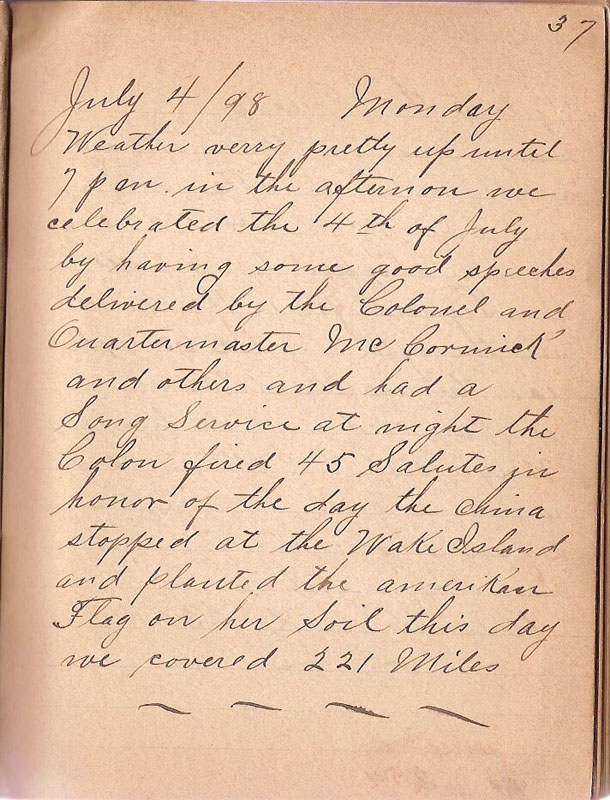 37
July 4/98 Monday
Weather verry pretty up until
7 p m. in the afternon we
celebrated the 4th of July
by having some good speeches
delivered by the Colonel and
Quartermaster Mc Cormick
and others and had a
Song Service at night the
Colon fired 45 Salutes in
honor of the day the china
stopped at the Wake Island
and planted the amerikan
Flag on her Soil this day
we covered 221 Miles